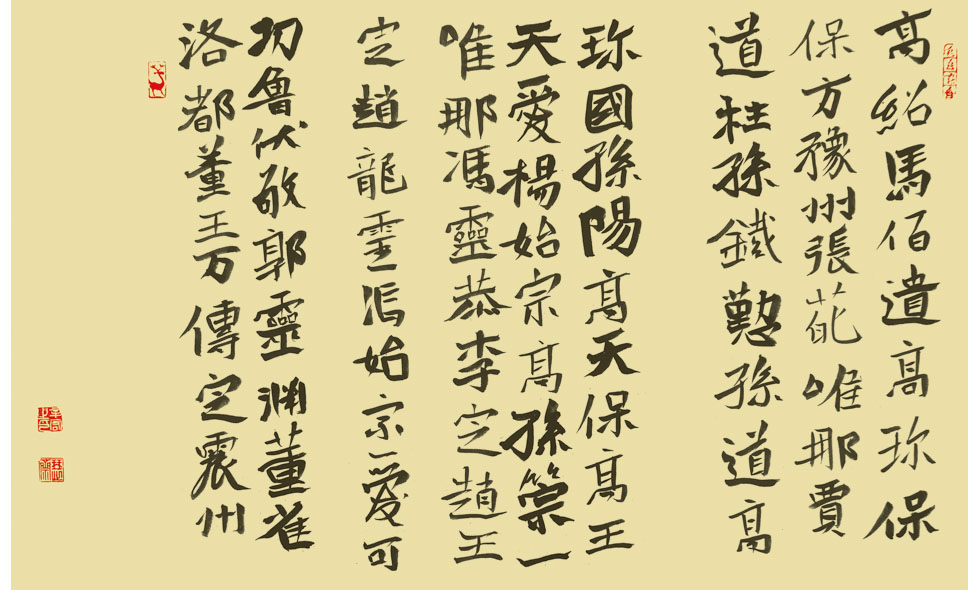 高紹馬佰遺高珎保
保方豫州張花唯那賈
道柱孫鐵懃孫道高
珎國孫陽高天保高王
天愛楊始宗高孫榮一
唯那馮靈恭李定趙王
定趙龍馮始宗愛可
功魯伏敬郭靈淵董雀
洛都董王万傳定震州